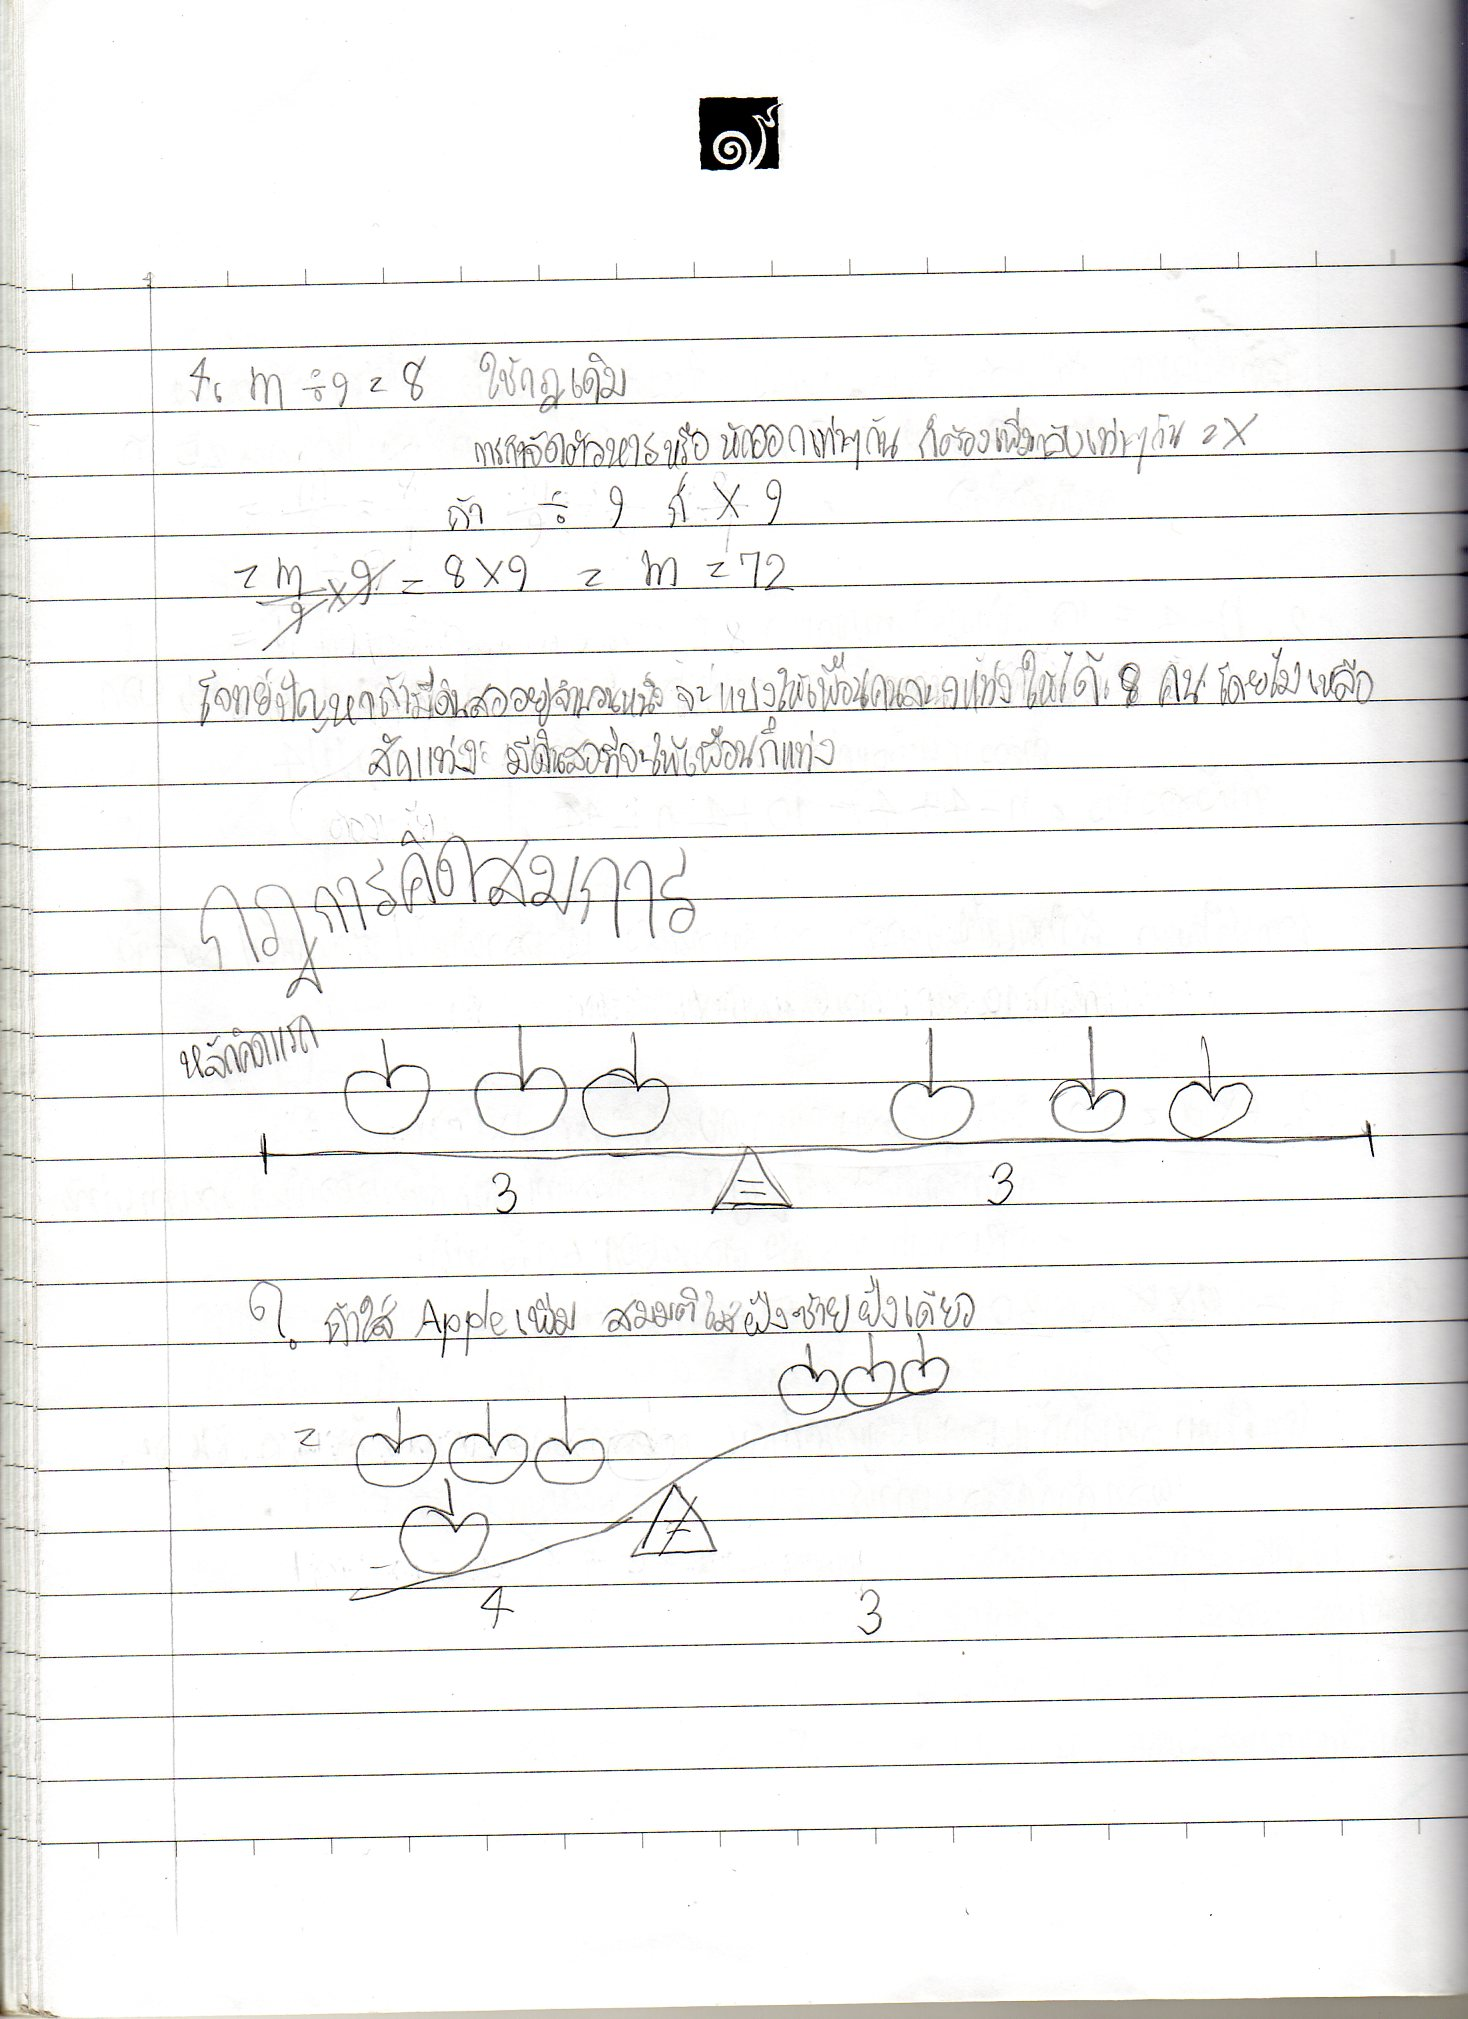 4. m ÷ 9 = 8 ใช้กฎเดิม
การกำจัดตัวหารหรือ หักออกเท่าๆกัน ก็ต้องเพิ่มกลับเท่าๆกัน = X
ถ้า ÷ 9 ก็ X 9
= m/9 × 9 = 8 × 9 = m = 72
โจทย์ปัญหา ถ้ามีดินสออยู่จำนวนหนึ่ง จะแบ่งให้เพื่อนคนละ 9 แท่ง ให้ได้ 8 คน โดยไม่เหลือ
สักแท่ง มีดินสอที่จะให้เพื่อนกี่แท่ง
กฎการคิดสมการ
หลักคิดแรก
=
3 3
1. ถ้าใส่ Apple เพิ่ม สมมติใส่ฝั่งซ้ายฝั่งเดียว
=
≠
4 3